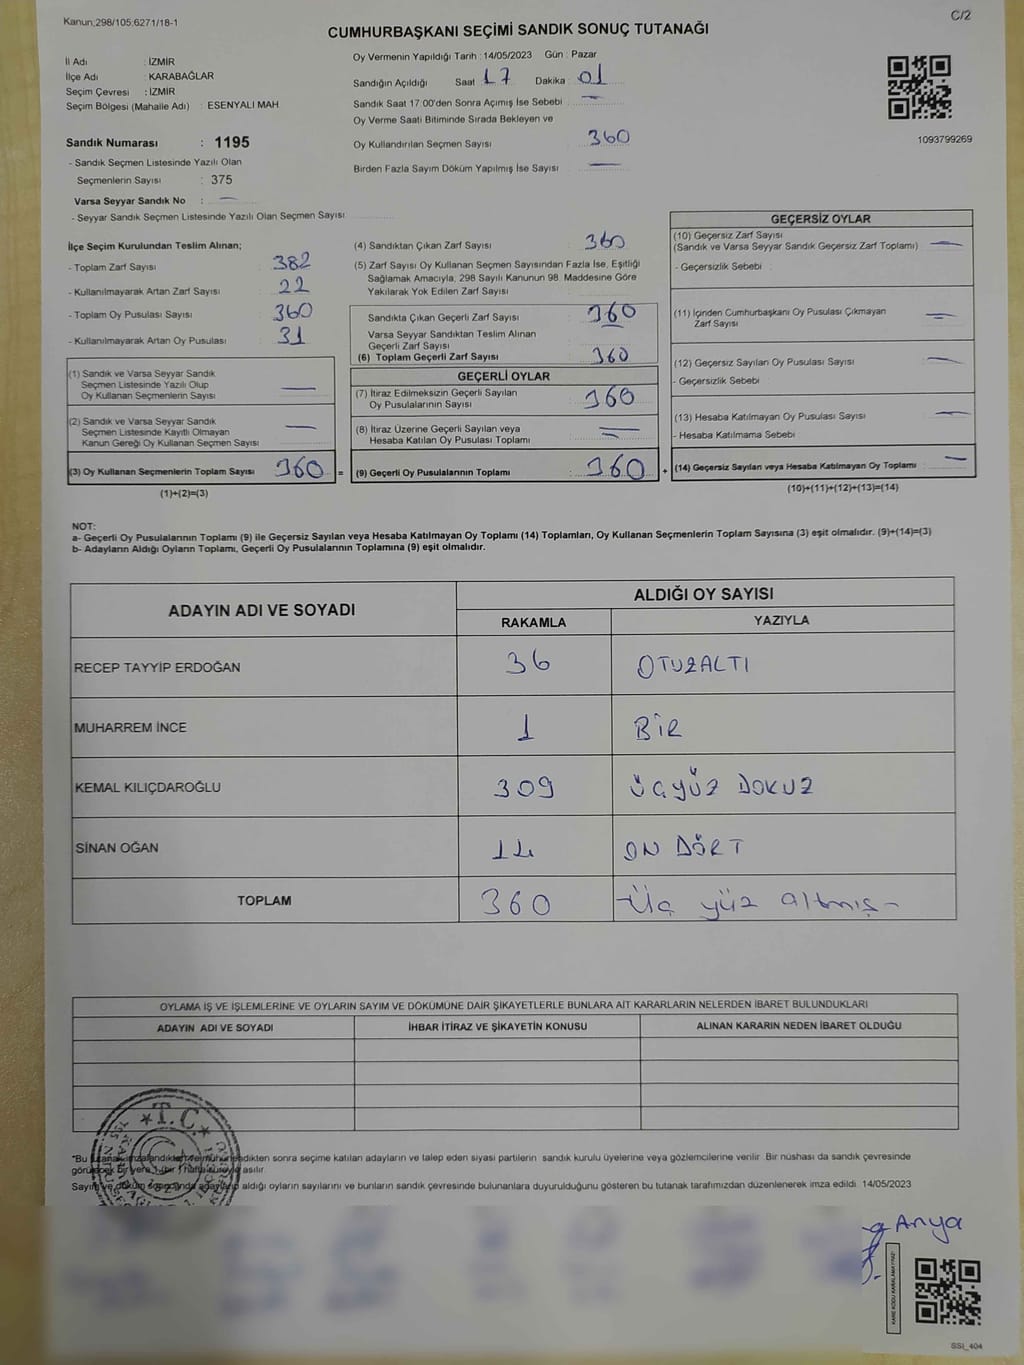 Kanun,298/105;6271/18-1
C/2
CUMHURBAŞKANI SEÇİMİ SANDIK SONUÇ TUTANAĞI
İl Adı : İZMİR
İlçe Adı : KARABAĞLAR
Seçim Çevresi : İZMİR
Seçim Bölgesi (Mahalle Adı) : ESENYALI MAH
Sandık Numarası : 1195
- Sandık Seçmen Listesinde Yazılı Olan
Seçmenlerin Sayısı : 375
Varsa Seyyar Sandık No : —
- Seyyar Sandık Seçmen Listesinde Yazılı Olan Seçmen Sayısı
Oy Vermenin Yapıldığı Tarih : 14/05/2023 Gün : Pazar
Sandığın Açıldığı Saat 17 Dakika : 01
Sandık Saat 17:00'den Sonra Açımış İse Sebebi : —
Oy Verme Saati Bitiminde Sırada Bekleyen ve
Oy Kullandırılan Seçmen Sayısı : 360
Birden Fazla Sayım Döküm Yapılmış İse Sayısı : —
1093799269
İlçe Seçim Kurulundan Teslim Alınan;
- Toplam Zarf Sayısı : 382
- Kullanılmayarak Artan Zarf Sayısı : 22
- Toplam Oy Pusulası Sayısı : 360
- Kullanılmayarak Artan Oy Pusulası : 31
(1) Sandık ve Varsa Seyyar Sandık
Seçmen Listesinde Yazılı Olup
Oy Kullanan Seçmenlerin Sayısı —
(2) Sandık ve Varsa Seyyar Sandık
Seçmen Listesinde Kayıtlı Olmayan
Kanun Gereği Oy Kullanan Seçmen Sayısı —
(3) Oy Kullanan Seçmenlerin Toplam Sayısı 360 =
(1)+(2)=(3)
(4) Sandıktan Çıkan Zarf Sayısı : 360
(5) Zarf Sayısı Oy Kullanan Seçmen Sayısından Fazla İse, Eşitliği
Sağlamak Amacıyla, 298 Sayılı Kanunun 98. Maddesine Göre
Yakılarak Yok Edilen Zarf Sayısı
Sandıkta Çıkan Geçerli Zarf Sayısı : 360
Varsa Seyyar Sandıktan Teslim Alınan
Geçerli Zarf Sayısı
(6) Toplam Geçerli Zarf Sayısı : 360
GEÇERLİ OYLAR
(7) İtiraz Edilmeksizin Geçerli Sayılan
Oy Pusulalarının Sayısı : 360
(8) İtiraz Üzerine Geçerli Sayılan veya
Hesaba Katılan Oy Pusulası Toplamı : —
(9) Geçerli Oy Pusulalarının Toplamı : 360 +
GEÇERSİZ OYLAR
(10) Geçersiz Zarf Sayısı
(Sandık ve Varsa Seyyar Sandık Geçersiz Zarf Toplamı) : —
- Geçersizlik Sebebi :
(11) İçinden Cumhurbaşkanı Oy Pusulası Çıkmayan
Zarf Sayısı : —
(12) Geçersiz Sayılan Oy Pusulası Sayısı : —
- Geçersizlik Sebebi
(13) Hesaba Katılmayan Oy Pusulası Sayısı : —
- Hesaba Katılmama Sebebi
(14) Geçersiz Sayılan veya Hesaba Katılmayan Oy Toplamı : —
(10)+(11)+(12)+(13)=(14)
NOT:
a- Geçerli Oy Pusulalarının Toplamı (9) ile Geçersiz Sayılan veya Hesaba Katılmayan Oy Toplamı (14) Toplamları, Oy Kullanan Seçmenlerin Toplam Sayısına (3) eşit olmalıdır. (9)+(14)=(3)
b- Adayların Aldığı Oyların Toplamı, Geçerli Oy Pusulalarının Toplamına (9) eşit olmalıdır.
ADAYIN ADI VE SOYADI
ALDIĞI OY SAYISI
RAKAMLA YAZIYLA
RECEP TAYYİP ERDOĞAN 36 OTUZALTI
MUHARREM İNCE 1 BİR
KEMAL KILIÇDAROĞLU 309 ÜÇYÜZ DOKUZ
SİNAN OĞAN 14 ON DÖRT
TOPLAM 360 -Üç yüz altmış-
OYLAMA İŞ VE İŞLEMLERİNE VE OYLARIN SAYIM VE DÖKÜMÜNE DAİR ŞİKAYETLERLE BUNLARA AİT KARARLARIN NELERDEN İBARET BULUNDUKLARI
ADAYIN ADI VE SOYADI İHBAR İTİRAZ VE ŞİKAYETİN KONUSU ALINAN KARARIN NEDEN İBARET OLDUĞU
★T.C.★
"Bu sonra seçime katılan adayların ve talep eden siyasi partilerin sandık kurulu üyelerine veya gözlemcilerine verilir. Bir nüshası da sandık çevresinde
asılır.
aldığı oyların sayılarını ve bunların sandık çevresinde bulunanlara duyurulduğunu gösteren bu tutanak tarafımızdan düzenlenerek imza edildi. 14/05/2023
Arya
SSI_404